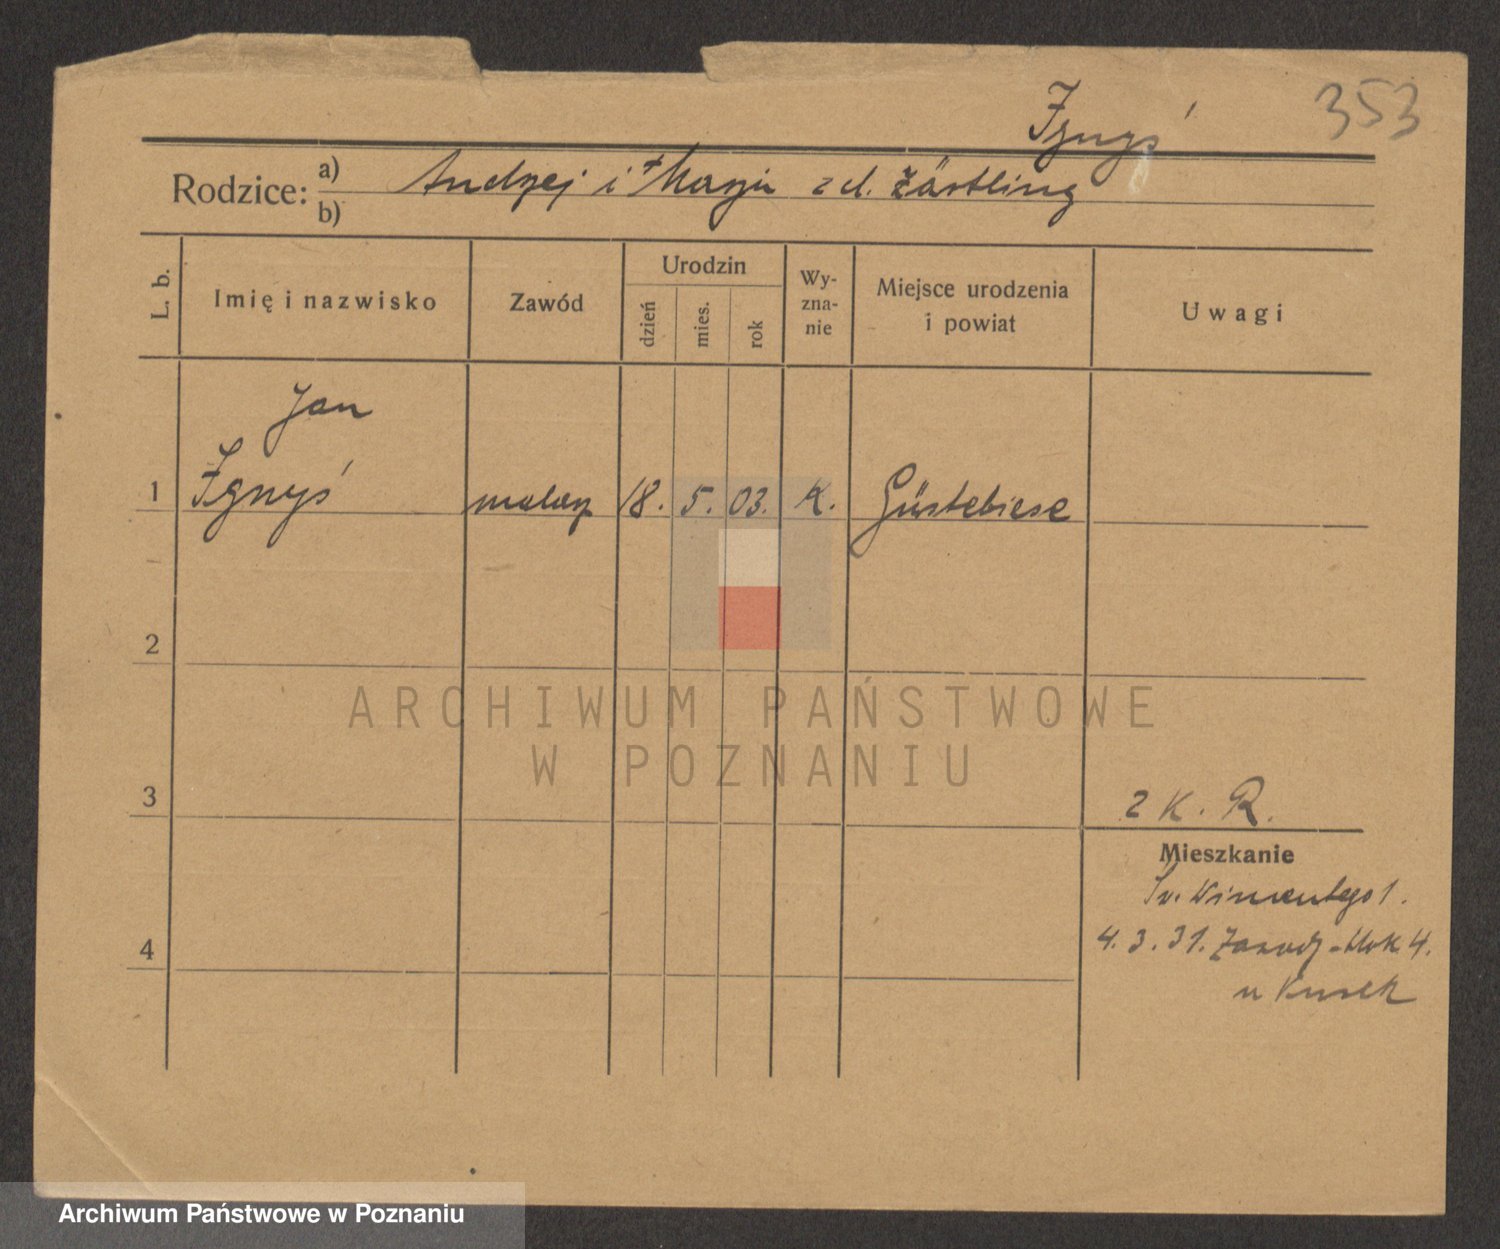 353
Ignyś
Rodzice: a) Andrzej i † Marja z d. Zärtling
b)
L. b.
Imię i nazwisko
Zawód
Urodzin
dzień
mies.
rok
Wy-
zna-
nie
Miejsce urodzenia
i powiat
Uwagi
Jan
1 Ignyś malarz 18. 5. 03. K. Güstebiese
2
ARCHIWUM PAŃSTWOWE
W POZNANIU
3
2 K. R.
Mieszkanie
Św. Wincentego 1.
4
4. 3. 31. Zawady - blok 4.
u
Archiwum Państwowe w Poznaniu